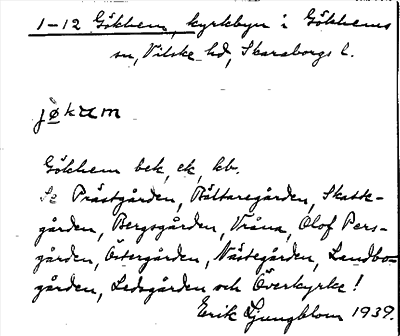 1-12 Gökhem, kyrkbyn i Gökhems
sn, Vilske hd, Skaraborgs l.
Gökhem bek, ek, kb.
Se Prästgården, Bältaregården, Skatte-
gården, Bergsgården, Vråna, Olof Pers-
gården, Östergården, Nästegården, Landbo-
gården, Ledsgården och Överkyrke!
Erik Ljungblom 1939.